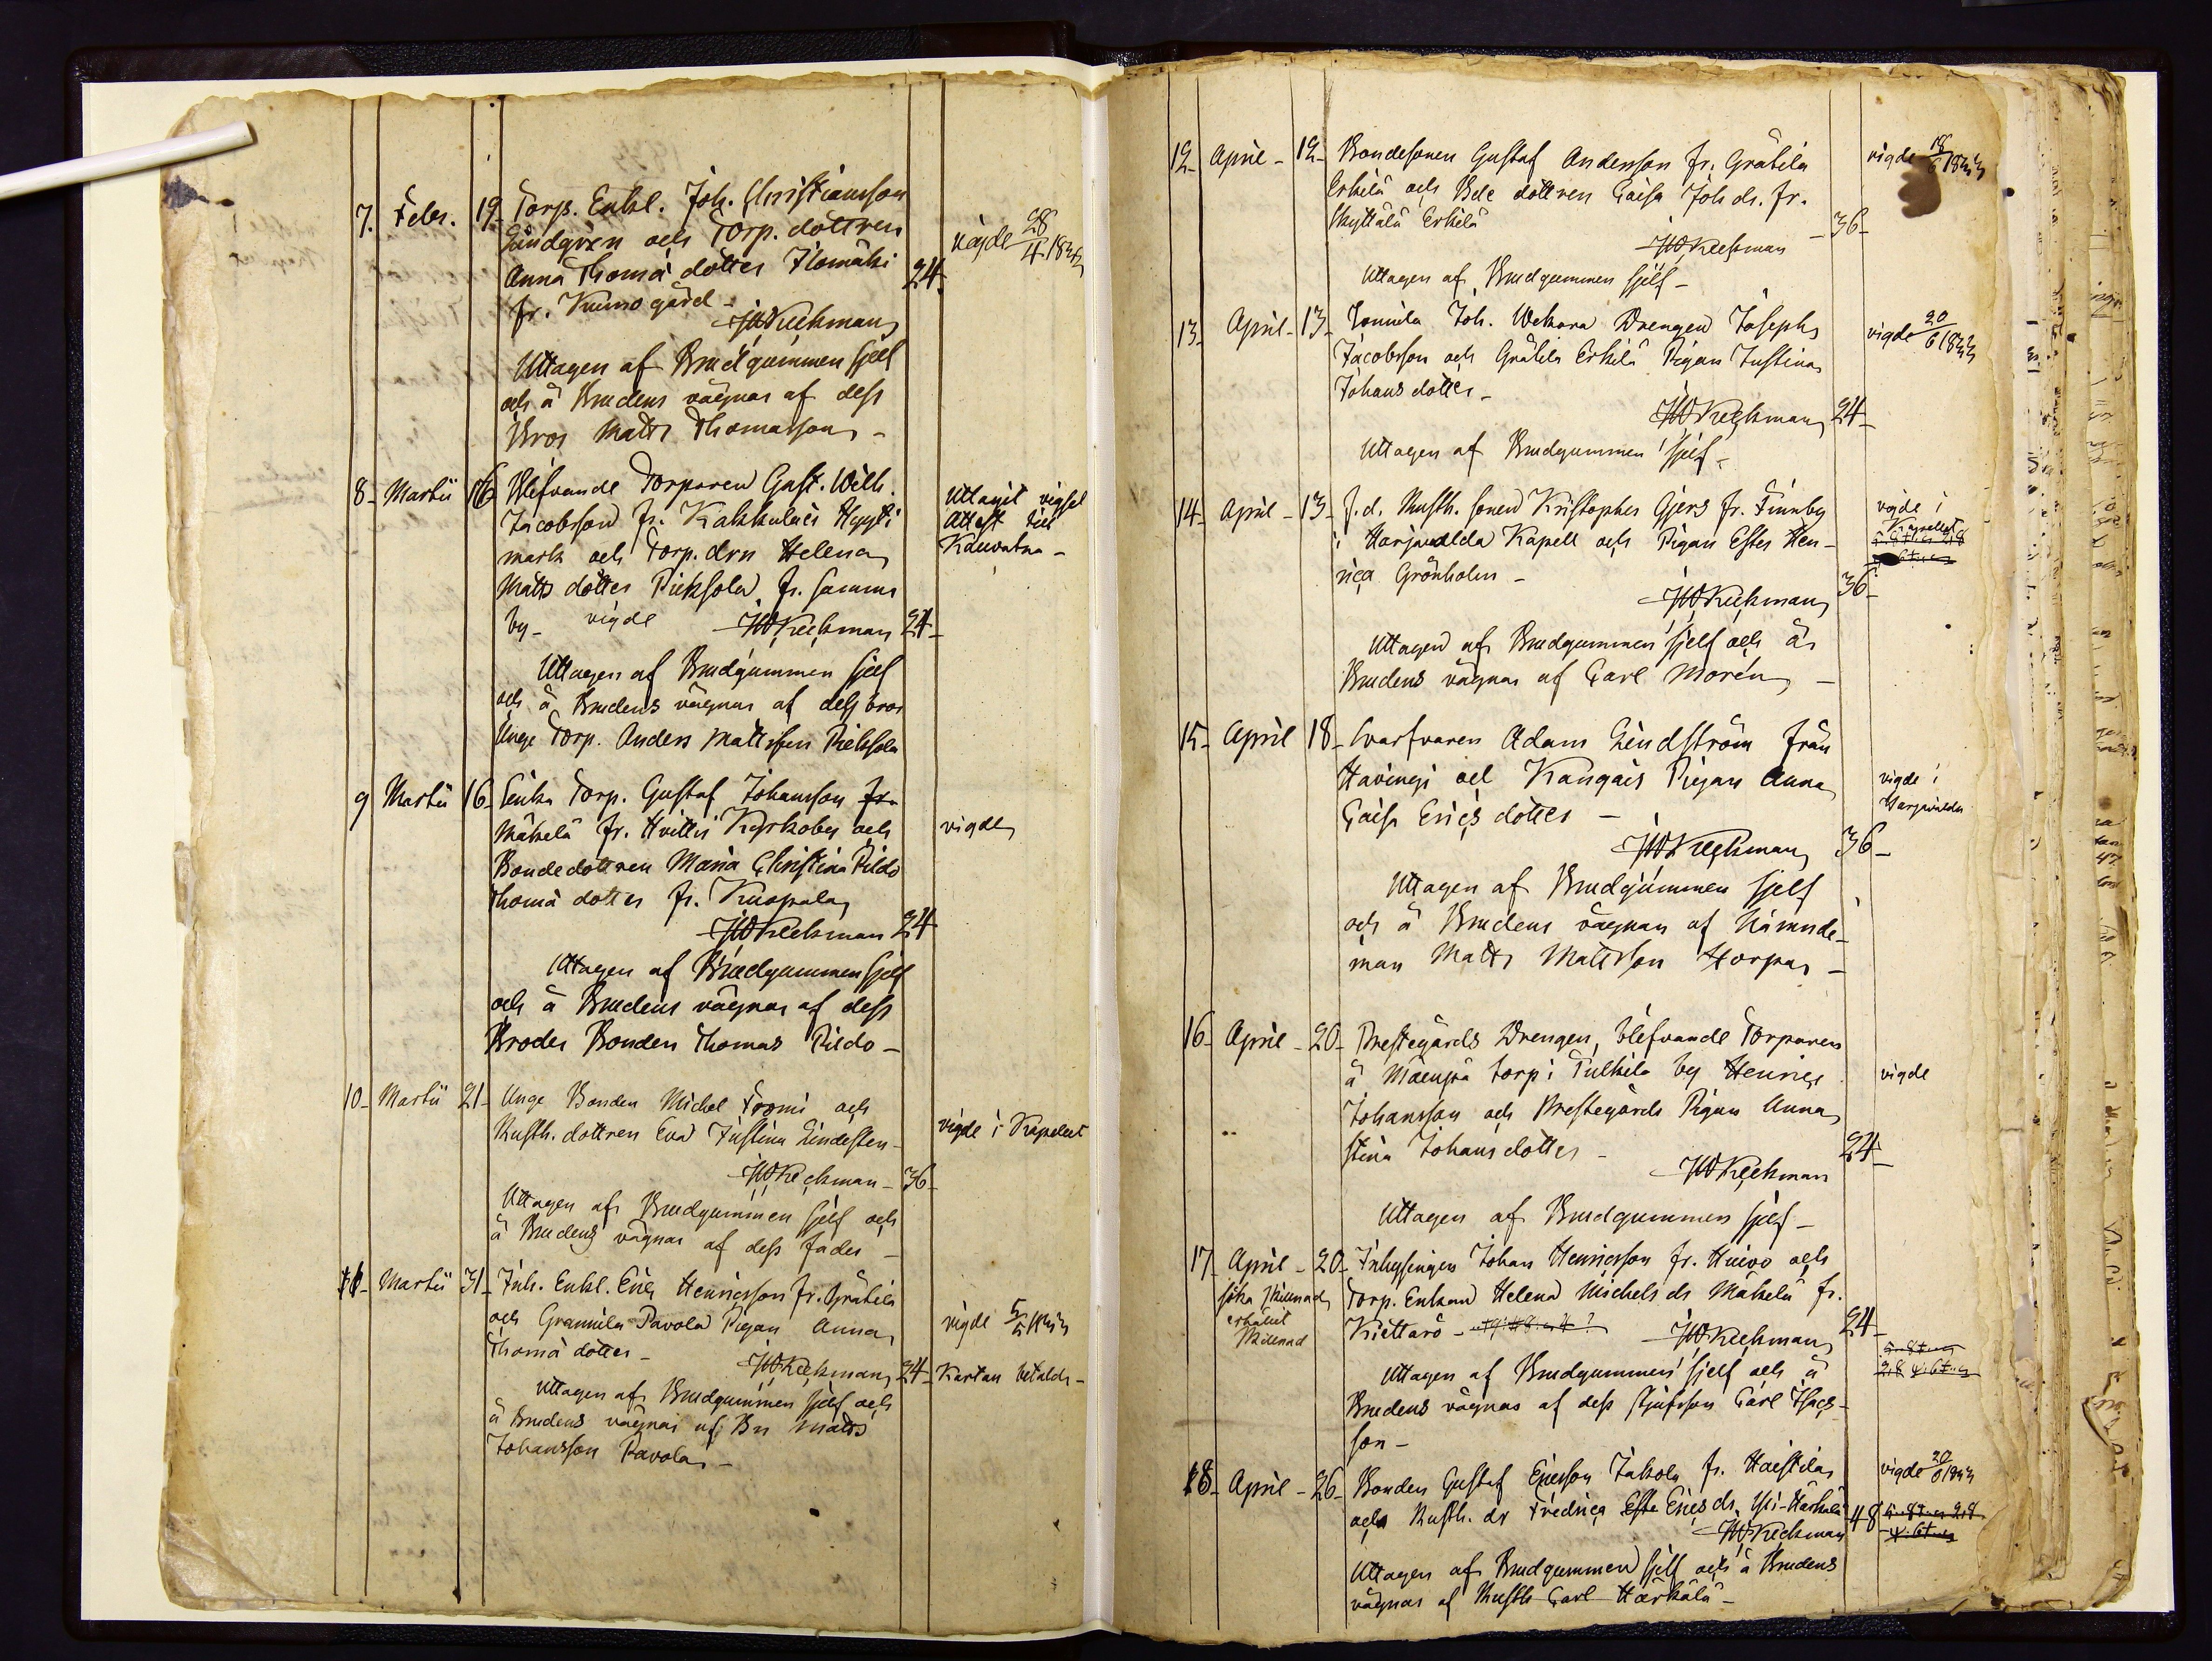 7. Febr. 19. Torp. Enkl. Joh. Christiansson
Lindqvén och Torp. dottren
Anna Thomä dotter Ilomäki 24.
fr. Kuino gård -
JWKeckman
vigde 28/4 1833
Uttagen af Brudgummen sjelf
och å Brudens vägnar af dess
Bror Matts Thomasson -
8- Martii 16 Blifvande Torparen Gust. Wilh.
Jacobsson fr. Kakkulais Hyyti
mark och Torp. drn Helena
Matts dotter Pieksola fr. samma
by- vigde JWKeckman 24-
Uttagit vigsel
Attest till
Kauvatsa -
Uttagen af Brudgummen sjelf
och å Brudens vägnar af dess bror
Unge Torp. Anders Mattsson Pieksola
9 Martii 16 Enkl. Torp. Gustaf Johansson fr.
Mäkelä fr. Hvittis Kyrkoby och vigde
Bondedottren Maria Christina Pildo
Thomä dotter fr. Kuopala
JWKeckman 24
Uttagen af Brudgummen sjelf
och å Brudens vägnar af dess
Broder Bonden Thomas Pildo -
10- Martii 21- Unge Bonden Michel Fromi och
Rusth. dottren Eva Justina Lindesten - vigde i Kapellet
JWKeckman - 36-
Uttagen af Brudgummen sjelf och
å Brudens vägnar af dess fader -
11- Martii 31- Inh. Enkl. Eric Henricsson fr. Gräbila
och Grannila Pavola Pigan Anna vigde 5/5 1833
Thomä dotter -
JWKeckman 24- Kartan betald -
Uttagen af Brudgummen sjelf och
å Brudens vägnar af Bn Matts
Johansson Pavola -
12- April - 12- Bondesonen Gustaf Andersson fr. Gräbila vigde 18/6 1833
Erkilä och Bde dottren Caisa Joh dr. fr.
Skyttälä Erkilä - 36-
JWKeckman
Uttagen af Brudgummen sjelf -
13- April - 13- Joh. Wekara Drengen Joseph vigde 20/6 1833
Jacobsson och Gräbila Erkilä Pigan Justina
Johans dotter -
JWKeckman 24-
Uttagen af Brudgummen sjelf -
14- April - 13- f.d. Rusth. sonen Kristopher Gjers fr. Finnby vigde i
i Harjavalda Kapell och Pigan Ester Hen- Kapellet
rica Grönholm - 36-
JWKeckman
Uttagen af Brudgummen sjelf och å
Brudens vägnar af Carl Morén -
15- April 18- Svarfvaren Adam Lindström från
Havingi och Kangais Pigan Anna vigde i
Caisa Erics dotter - Harjavalda
JWKeckman 36-
Uttagen af Brudgummen sjelf
och å Brudens vägnar af Nämnde-
man Matts Mattsson Horpa -
16- April - 20- Prestegårds Drengen, blefvande Torparen
å Mäenpää torp i Tulkila by Henric vigde
Johansson och Prestegårds Pigan Anna
Stina Johans dotter - 24-
JWKeckman
Uttagen af Brudgummen sjelf -
17- April - 20- Inhysingen Johan Henricsson fr. Huivo och
söka skillnad Torp. Enkan Helena Michels dr Mäkelä fr.
erhållit Kiettarö - 24-
Skillnad JWKeckman
Uttagen af Brudgummen sjelf och å
Brudens vägnar af dess styfsson Carl Isacs-
son -
18- April - 26- Bonden Gustaf Ericsson Jakola fr. Haistila vigde 20/6 1833
och Rusth. dr Fredrica Este Erics dr. Yli-Härkälä 48
JWKeckman
Uttagen af Brudgummen sjelf och å Brudens
vägnar af Rusth Carl Härkälä -